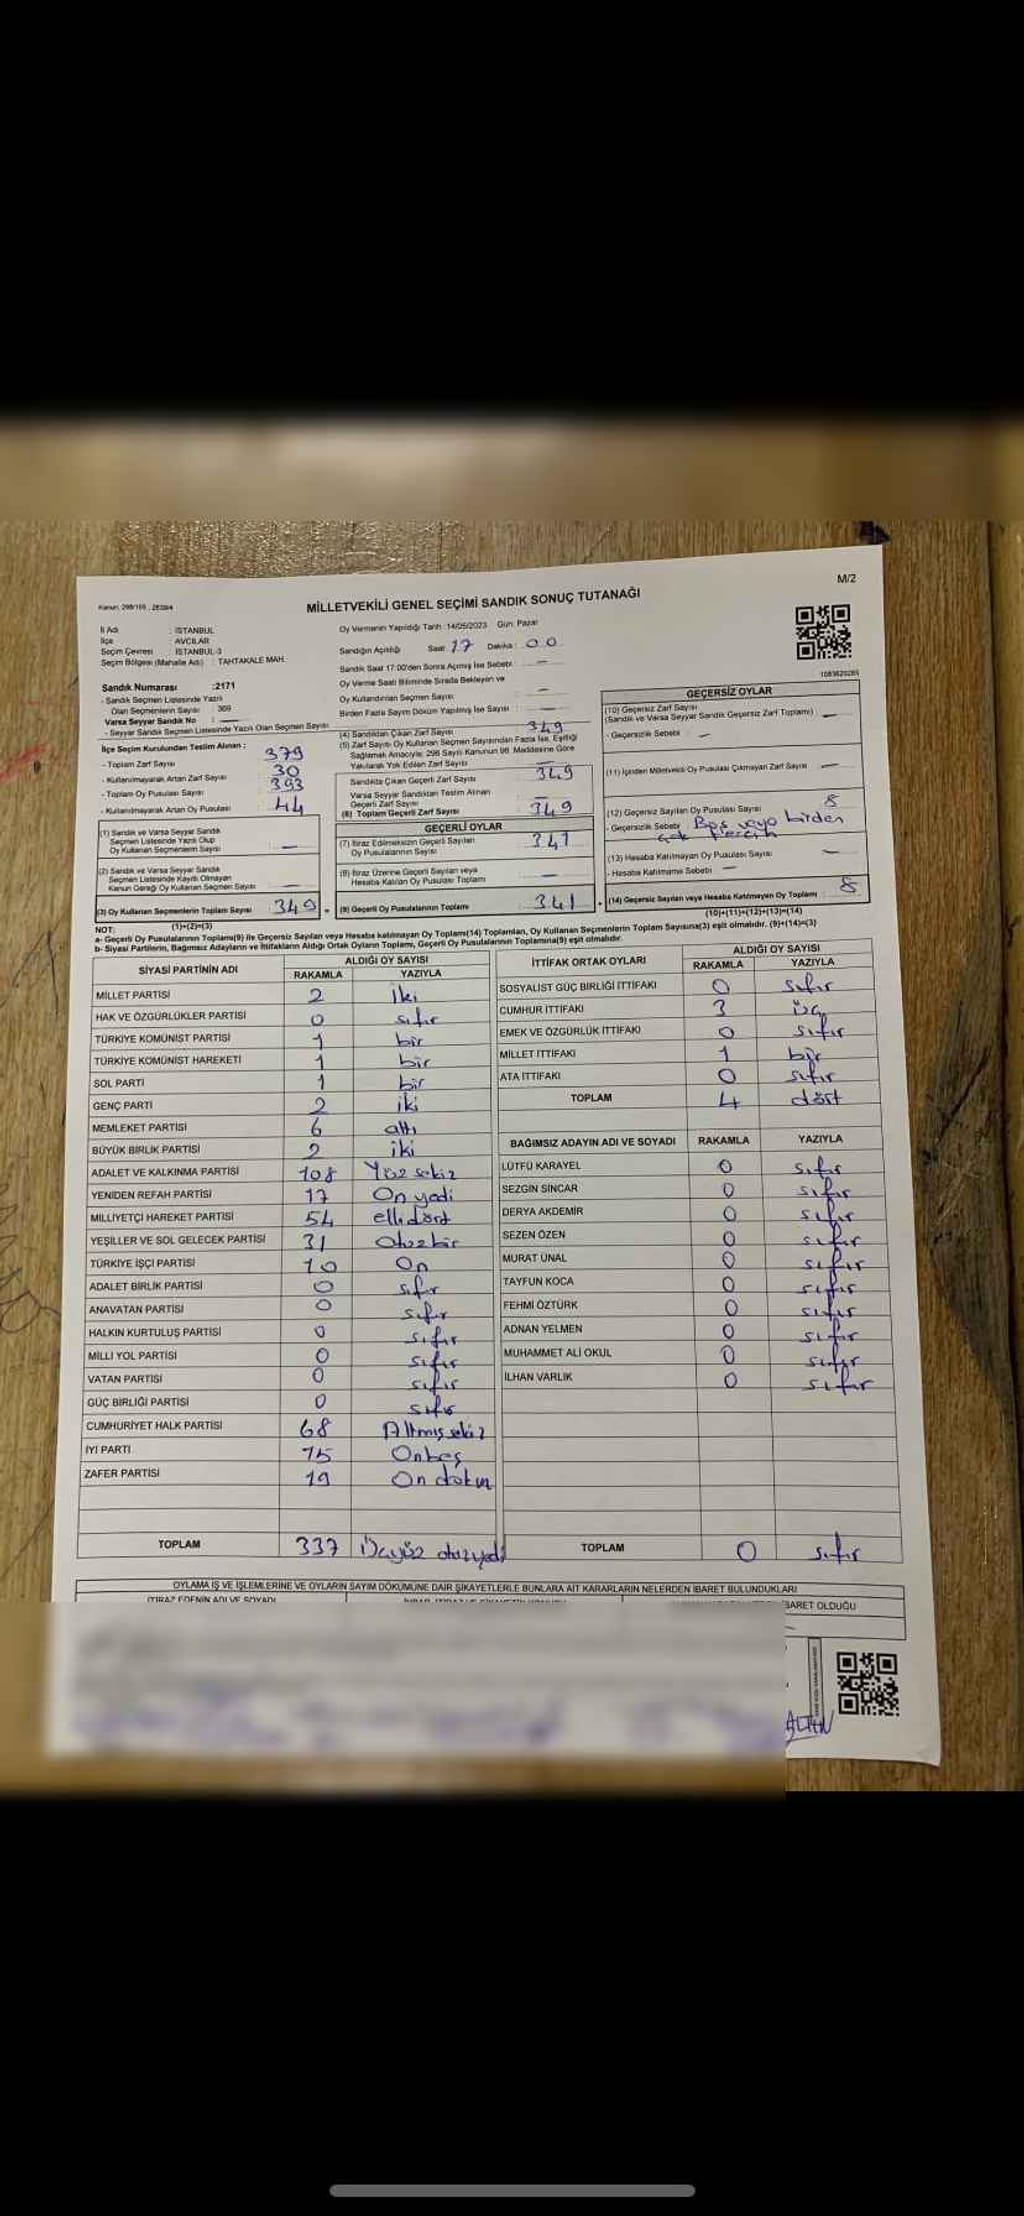 M/2
Kanun: 298/105 ; 2839/4
MİLLETVEKİLİ GENEL SEÇİMİ SANDIK SONUÇ TUTANAĞI
İl Adı : İSTANBUL
İlçe : AVCILAR
Seçim Çevresi : İSTANBUL-3
Seçim Bölgesi (Mahalle Adı) : TAHTAKALE MAH.
Sandık Numarası :2171
- Sandık Seçmen Listesinde Yazılı
Olan Seçmenlerin Sayısı : 369
Varsa Seyyar Sandık No : —
- Seyyar Sandık Seçmen Listesinde Yazılı Olan Seçmen Sayısı :
İlçe Seçim Kurulundan Teslim Alınan :
- Toplam Zarf Sayısı 379
- Kullanılmayarak Artan Zarf Sayısı 30
- Toplam Oy Pusulası Sayısı 393
- Kullanılmayarak Artan Oy Pusulası 44
(1) Sandık ve Varsa Seyyar Sandık
Seçmen Listesinde Yazılı Olup
Oy Kullanan Seçmenlerin Sayısı : —
(2) Sandık ve Varsa Seyyar Sandık
Seçmen Listesinde Kayıtlı Olmayan
Kanun Gereği Oy Kullanan Seçmen Sayısı : —
(3) Oy Kullanan Seçmenlerin Toplam Sayısı : 349
(1)+(2)=(3)
Oy Vermenin Yapıldığı Tarih :14/05/2023 Gün: Pazar
Sandığın Açıldığı Saat : 17 Dakika : 00
Sandık Saat 17:00'den Sonra Açılmış İse Sebebi : —
Oy Verme Saati Bitiminde Sırada Bekleyen ve
Oy Kullandırılan Seçmen Sayısı : —
Birden Fazla Sayım Döküm Yapılmış İse Sayısı : —
(4) Sandıktan Çıkan Zarf Sayısı 349
(5) Zarf Sayısı Oy Kullanan Seçmen Sayısından Fazla İse, Eşitliği
Sağlamak Amacıyla; 298 Sayılı Kanunun 98. Maddesine Göre
Yakılarak Yok Edilen Zarf Sayısı —
Sandıkta Çıkan Geçerli Zarf Sayısı 349
Varsa Seyyar Sandıktan Teslim Alınan
Geçerli Zarf Sayısı —
(6) Toplam Geçerli Zarf Sayısı 349
GEÇERLİ OYLAR
(7) İtiraz Edilmeksizin Geçerli Sayılan
Oy Pusulalarının Sayısı 341
(8) İtiraz Üzerine Geçerli Sayılan veya
Hesaba Katılan Oy Pusulası Toplamı —
(9) Geçerli Oy Pusulalarının Toplamı : 341
1083620285
GEÇERSİZ OYLAR
(10) Geçersiz Zarf Sayısı
(Sandık ve Varsa Seyyar Sandık Geçersiz Zarf Toplamı) —
- Geçersizlik Sebebi : —
(11) İçinden Milletvekili Oy Pusulası Çıkmayan Zarf Sayısı —
(12) Geçersiz Sayılan Oy Pusulası Sayısı 8
- Geçersizlik Sebebi Boş veya birden
çok tercih
(13) Hesaba Katılmayan Oy Pusulası Sayısı —
- Hesaba Katılmama Sebebi —
(14) Geçersiz Sayılan veya Hesaba Katılmayan Oy Toplamı : 8
(10)+(11)+(12)+(13)=(14)
NOT:
a- Geçerli Oy Pusulalarının Toplamı(9) ile Geçersiz Sayılan veya Hesaba katılmayan Oy Toplamı(14) Toplamları, Oy Kullanan Seçmenlerin Toplam Sayısına(3) eşit olmalıdır. (9)+(14)=(3)
b- Siyasi Partilerin, Bağımsız Adayların ve İttifakların Aldığı Ortak Oyların Toplamı, Geçerli Oy Pusulalarının Toplamına(9) eşit olmalıdır.
SİYASİ PARTİNİN ADI ALDIĞI OY SAYISI
RAKAMLA YAZIYLA
MİLLET PARTİSİ 2 iki
HAK VE ÖZGÜRLÜKLER PARTİSİ 0 sıfır
TÜRKİYE KOMÜNİST PARTİSİ 1 bir
TÜRKİYE KOMÜNİST HAREKETİ 1 bir
SOL PARTİ 1 bir
GENÇ PARTİ 2 iki
MEMLEKET PARTİSİ 6 altı
BÜYÜK BİRLİK PARTİSİ 2 iki
ADALET VE KALKINMA PARTİSİ 108 Yüz sekiz
YENİDEN REFAH PARTİSİ 17 On yedi
MİLLİYETÇİ HAREKET PARTİSİ 54 elli dört
YEŞİLLER VE SOL GELECEK PARTİSİ 31 Otuz bir
TÜRKİYE İŞÇİ PARTİSİ 10 On
ADALET BİRLİK PARTİSİ 0 sıfır
ANAVATAN PARTİSİ 0 sıfır
HALKIN KURTULUŞ PARTİSİ 0 sıfır
MİLLİ YOL PARTİSİ 0 sıfır
VATAN PARTİSİ 0 sıfır
GÜÇ BİRLİĞİ PARTİSİ 0 sıfır
CUMHURİYET HALK PARTİSİ 68 Altmış sekiz
İYİ PARTİ 15 Onbeş
ZAFER PARTİSİ 19 On dokuz
TOPLAM 337 Üçyüz otuzyedi
İTTİFAK ORTAK OYLARI ALDIĞI OY SAYISI
RAKAMLA YAZIYLA
SOSYALİST GÜÇ BİRLİĞİ İTTİFAKI 0 sıfır
CUMHUR İTTİFAKI 3 üç
EMEK VE ÖZGÜRLÜK İTTİFAKI 0 sıfır
MİLLET İTTİFAKI 1 bir
ATA İTTİFAKI 0 sıfır
TOPLAM 4 dört
BAĞIMSIZ ADAYIN ADI VE SOYADI RAKAMLA YAZIYLA
LÜTFÜ KARAYEL 0 sıfır
SEZGİN SİNCAR 0 sıfır
DERYA AKDEMİR 0 sıfır
SEZEN ÖZEN 0 sıfır
MURAT ÜNAL 0 sıfır
TAYFUN KOCA 0 sıfır
FEHMİ ÖZTÜRK 0 sıfır
ADNAN YELMEN 0 sıfır
MUHAMMET ALİ OKUL 0 sıfır
İLHAN VARLIK 0 sıfır
TOPLAM 0 sıfır
OYLAMA İŞ VE İŞLEMLERİNE VE OYLARIN SAYIM DÖKÜMÜNE DAİR ŞİKAYETLERLE BUNLARA AİT KARARLARIN NELERDEN İBARET BULUNDUKLARI
İTİRAZ EDENİN ADI VE SOYADI
İBARET OLDUĞU
ALTUN